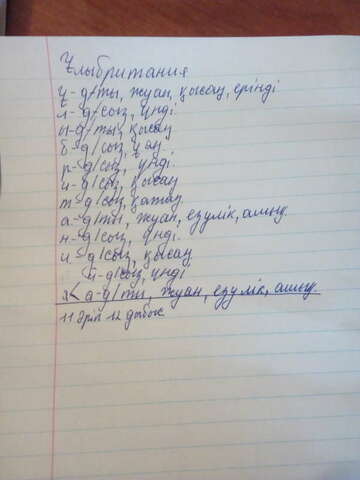 Ұлыбритания
ұ - д/ты, жуан, қысаң, ерінді
л - д/сыз, үнді
ы - д/ты, қысаң
б - д/сыз, ұяң
р - д/сыз, үнді.
и - д/сыз, қысаң
т - д/сыз, қатаң
а - д/ты, жуан, езулік, ашық.
н - д/сыз, үнді.
и - д/сыз, қысаң
й - д/сыз, үнді
я < а - д/ты, жуан, езулік, ашық.
11 әріп 12 дыбыс